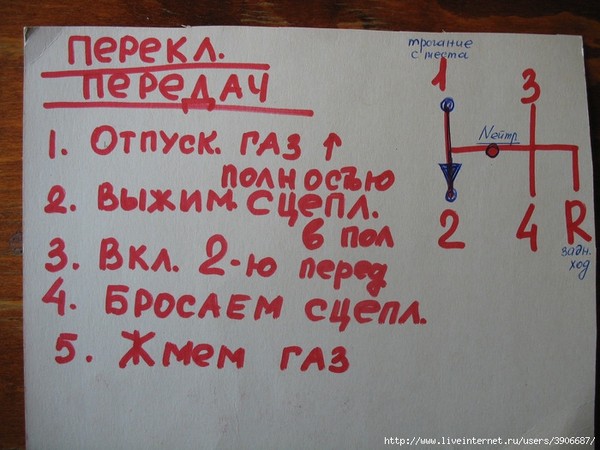 ПЕРЕКЛ.
ПЕРЕДАЧ
1. ОТПУСК. ГАЗ ↑
ПОЛНОСЪЮ
2. ВЫЖИМ. СЦЕПЛ.
В ПОЛ
3. ВКЛ. 2-Ю ПЕРЕД
4. БРОСАЕМ СЦЕПЛ.
5. ЖМЕМ ГАЗ
трогание
с места
1 3
Nейтр.
2 4 R
задн.
ход
http://www.liveinternet.ru/users/3906687/